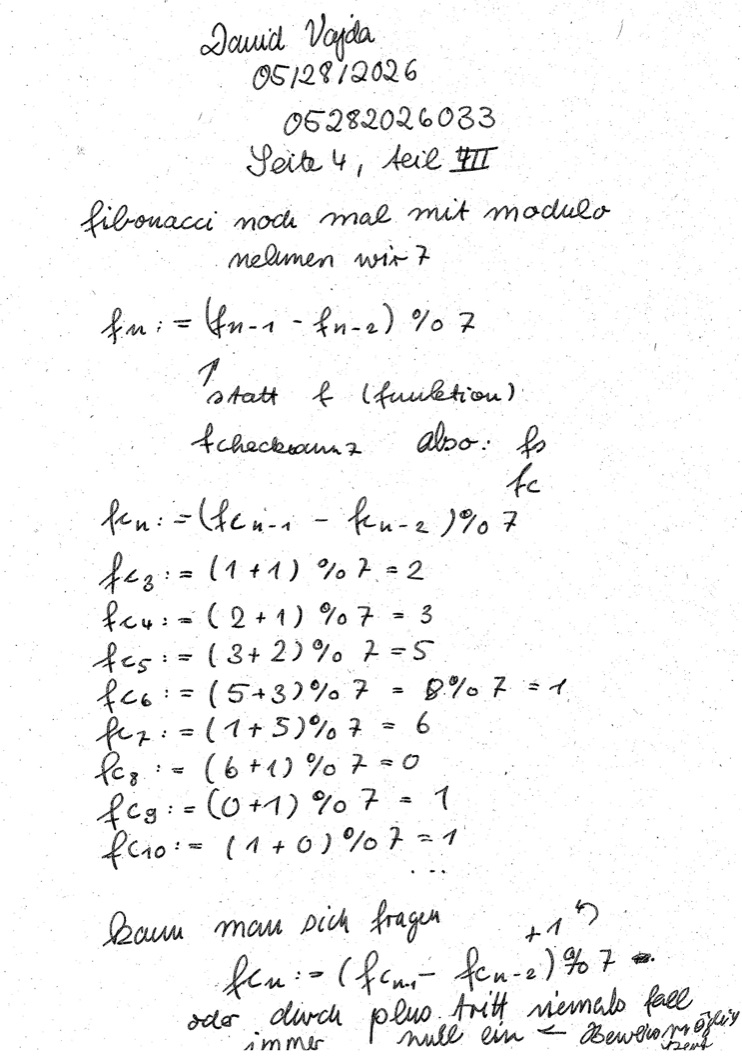 David Vajda
05/28/2026
05282026033
Seite 4, teil III
fibonacci noch mal mit modulo
nehmen wir 7
fn := (fn-1 - fn-2) % 7
↑
statt f (funktion)
fchecksum7 also: fs
fc
fcn := (fcn-1 - fcn-2) % 7
fc3 := (1+1) % 7 = 2
fc4 := (2+1) % 7 = 3
fc5 := (3+2) % 7 = 5
fc6 := (5+3) % 7 = 8 % 7 = 1
fc7 := (1+5) % 7 = 6
fc8 := (6+1) % 7 = 0
fc9 := (0+1) % 7 = 1
fc10 := (1+0) % 7 = 1
...
kann man sich fragen
+1
fcn := (fcn-1 - fcn-2) % 7
oder durch plus tritt niemals fall
immer null ein ←